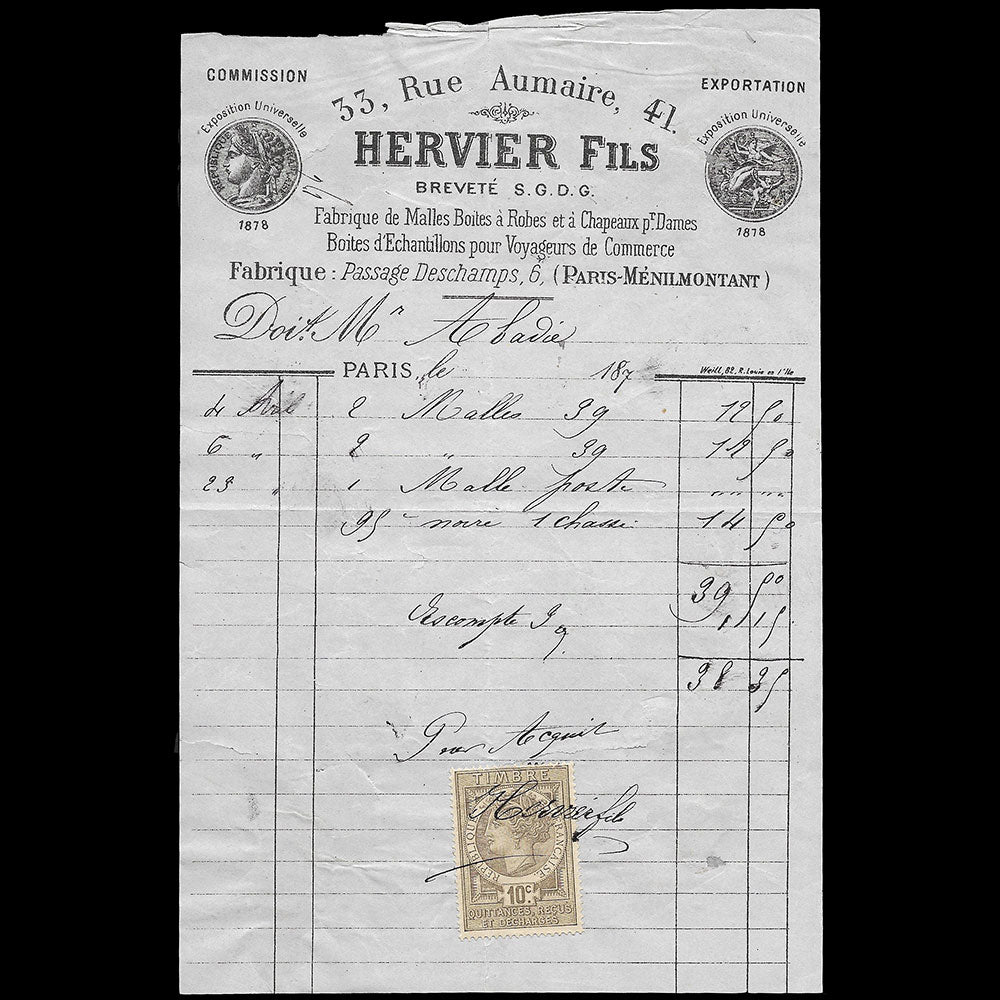 COMMISSION
EXPORTATION
33, Rue Aumaire, 41.
Exposition Universelle
Exposition Universelle
HERVIER FILS
BREVETÉ S.G.D.G.
1878
1878
Fabrique de Malles Boites à Robes et à Chapeaux pr. Dames
Boites d'Echantillons pour Voyageurs de Commerce
Fabrique : Passage Deschamps, 6, (PARIS-MÉNILMONTANT)
Doit Mr Abadie
PARIS, le 187
Weill, 82, R. Louis en l'Ile
4 Avril 2 Malles 39 12 50
6 " 2 " 39 12 50
23 " 1 Malle poste "" ""
95 noire 1 chassi 14 50
39 50
Escompte 3 1 15
38 35
Pour Acquit
TIMBRE
Hervier fils
RÉPUBLIQUE FRANÇAISE
10 c.
QUITTANCES, REÇUS
ET DÉCHARGES